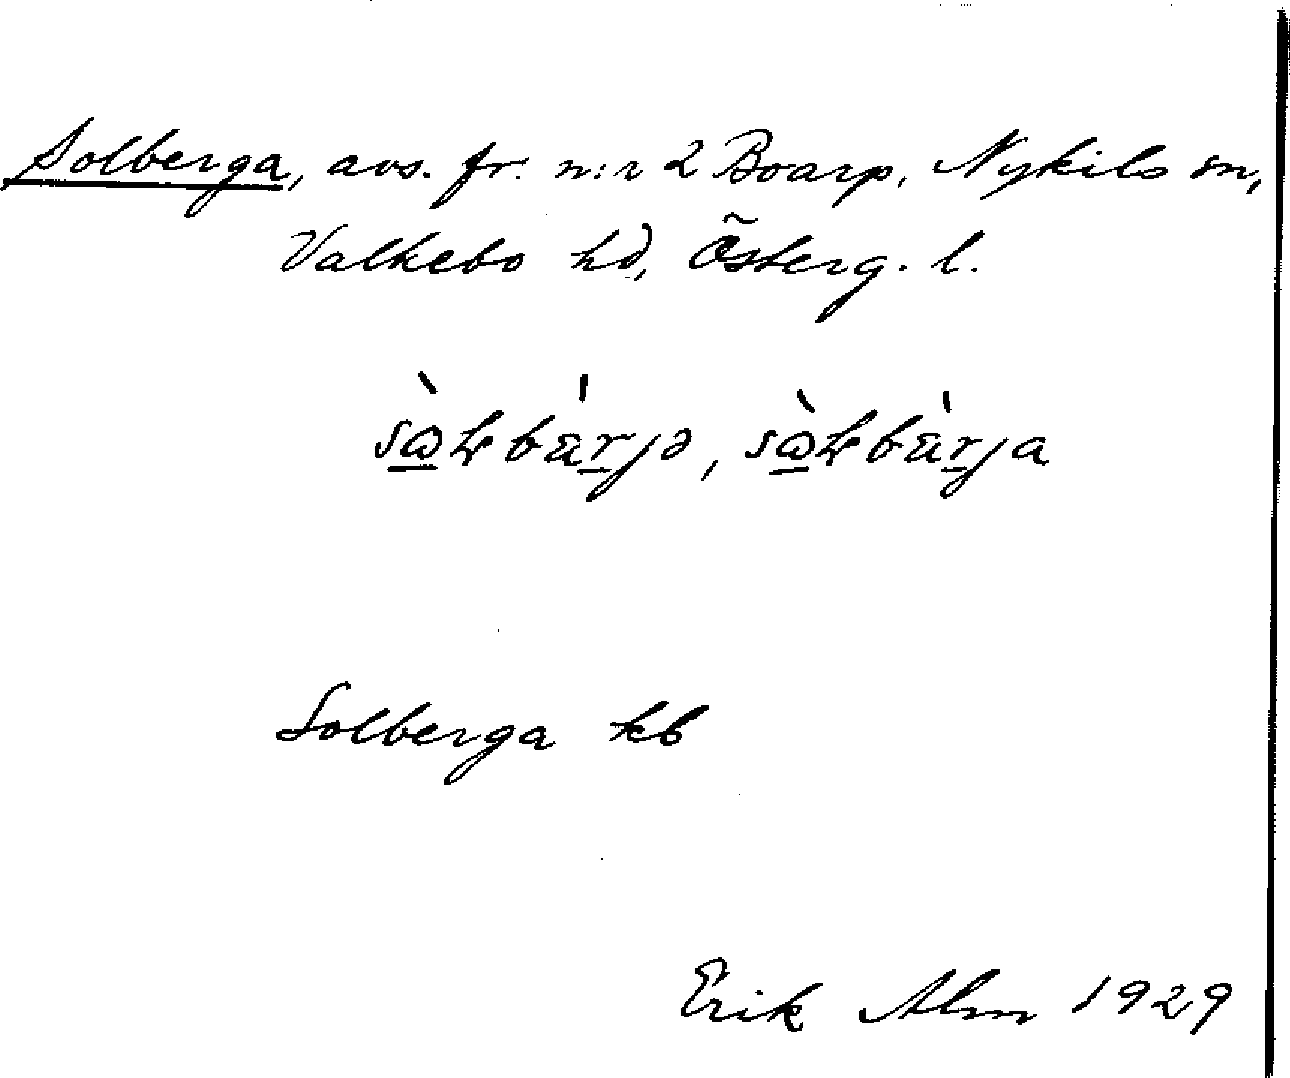 Solberga, avs. fr. n:r 2 Boarp, Nykils sn,
Valkebo hd, Österg. l.
Solberga kb
Erik Alm 1929